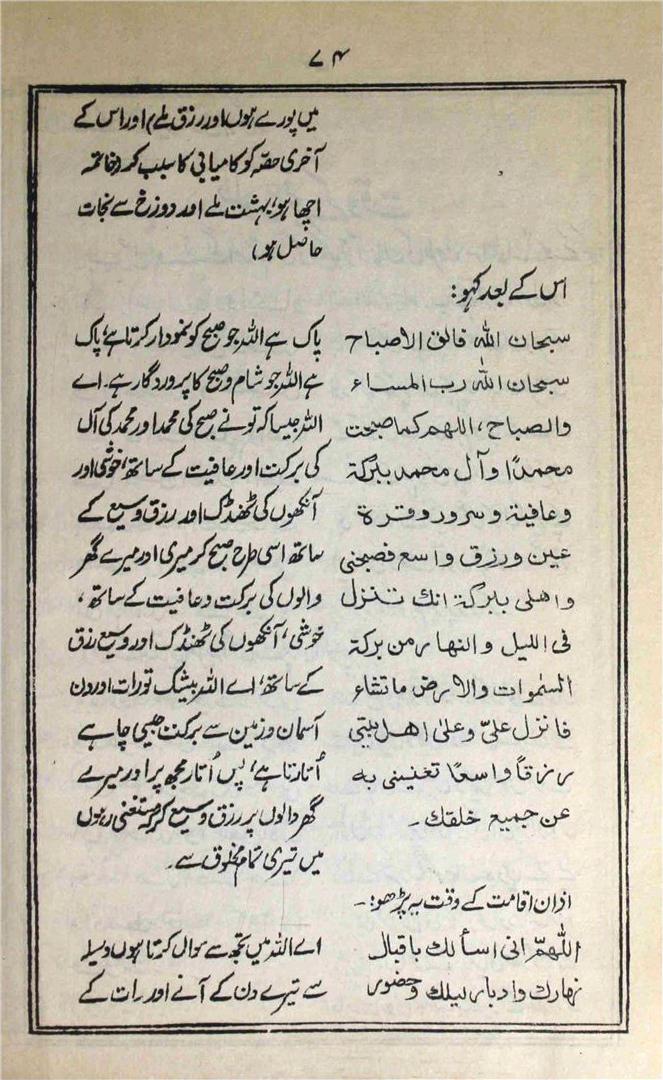 ۷۴
میں پورے ہوں اور رزق ملے) اور اس کے
آخری حصّہ کو کامیابی کا سبب کر (خاتمہ
اچھا ہو، بہشت ملے اور دوزخ سے نجات
حاصل ہو)
اس کے بعد کہو:
سبحان اللہ فالق الاصباح
سبحان اللہ رب المساء
والصباح، اللہم کما صبحت
محمدًا وآل محمد ببرکۃ
وعافیۃ وسرور وقرۃ
عین ورزق واسع فصبحنی
واھلی ببرکۃ انک تنزل
فی اللیل والنھار من برکۃ
السمٰوات والارض ماتشاء
فانزل علیّ وعلیٰ اھل بیتی
رزقاً واسعًا تغنینی بہ
عن جمیع خلقک۔
پاک ہے اللہ جو صبح کو نمودار کرتا ہے، پاک
ہے اللہ جو شام و صبح کا پروردگار ہے۔ اے
اللہ جیسا کہ تو نے صبح کی محمد اور محمد کی آل
کی برکت اور عافیت کے ساتھ، خوشی اور
آنکھوں کی ٹھنڈک اور رزق وسیع کے
ساتھ اسی طرح صبح کر میری اور میرے گھر
والوں کی برکت و عافیت کے ساتھ،
خوشی، آنکھوں کی ٹھنڈک اور وسیع رزق
کے ساتھ، اے اللہ بیشک تو رات اور دن
آسمان و زمین سے برکت جیسی چاہے
اُتارتا ہے، پس اُتار مجھ پر اور میرے
گھر والوں پر رزق وسیع کہ مستغنی رہوں
میں تیری تمام مخلوق سے۔
اذان اقامت کے وقت یہ پڑھو:۔
اللّٰھمّ انی اسألک باقبال
نھارک وادبار لیلک وحضور
اے اللہ میں تجھ سے سوال کرتا ہوں وسیلے
سے تیرے دن کے آنے اور رات کے